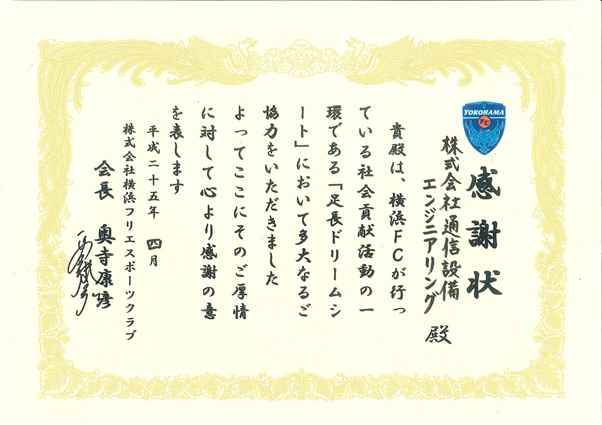 YOKOHAMA
FC
感謝状
株式会社通信設備
エンジニアリング 殿
貴殿は、横浜FCが行っ
ている社会貢献活動の一
環である「足長ドリームシ
ート」において多大なるご
協力をいただきました
よってここにそのご厚情
に対して心より感謝の意
を表します
平成二十五年 四月
株式会社横浜フリエスポーツクラブ
会長 奥寺康彦